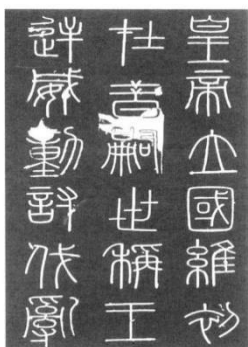 皇帝立國維初
在昔嗣世稱王
逆威動討伐亂